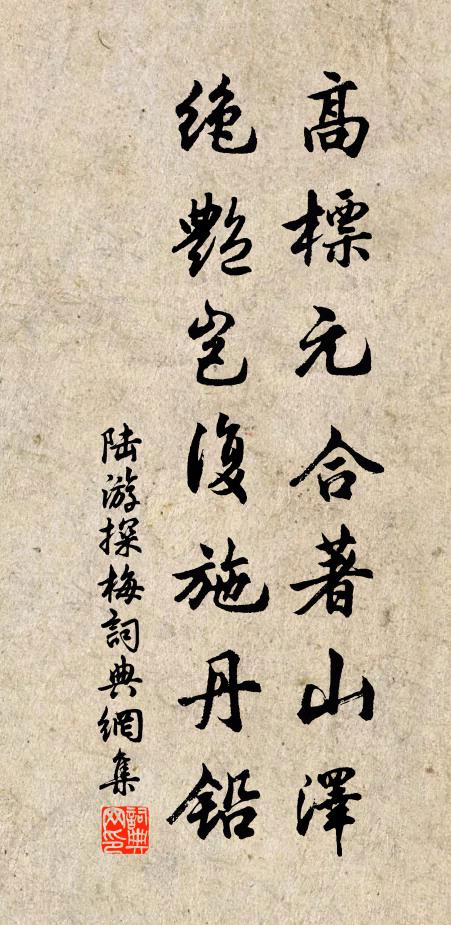 高標元合著山澤
絶艷豈復施丹鉛
陸游探梅詞典網集
詞典網印